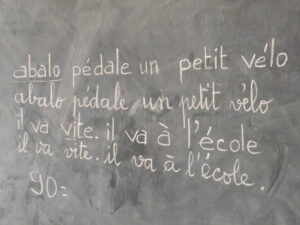 abalo pédale un petit vélo
abalo pédale un petit vélo
il va vite. il va à l'école
il va vite. il va à l'école.
90=